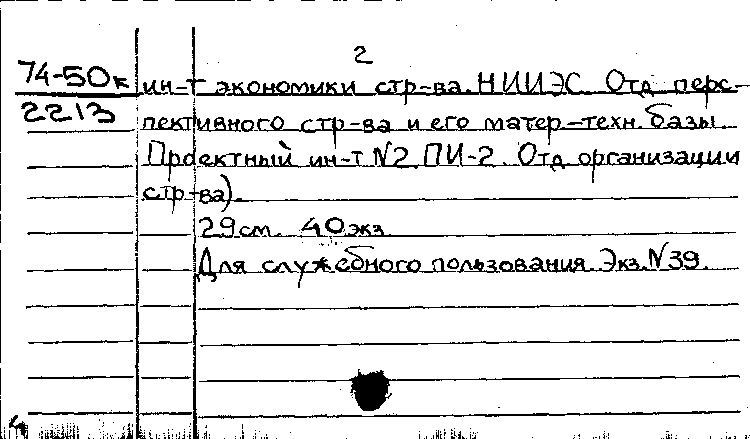 2
74-50к
2213
ин-т экономики стр-ва. НИИЭС. Отд. перс-
пективного стр-ва и его матер-техн. базы.
Проектный ин-т №2 ПИ-2. Отд. организации
стр-ва).
29см. 40экз.
Для служебного пользования. Экз. №39.